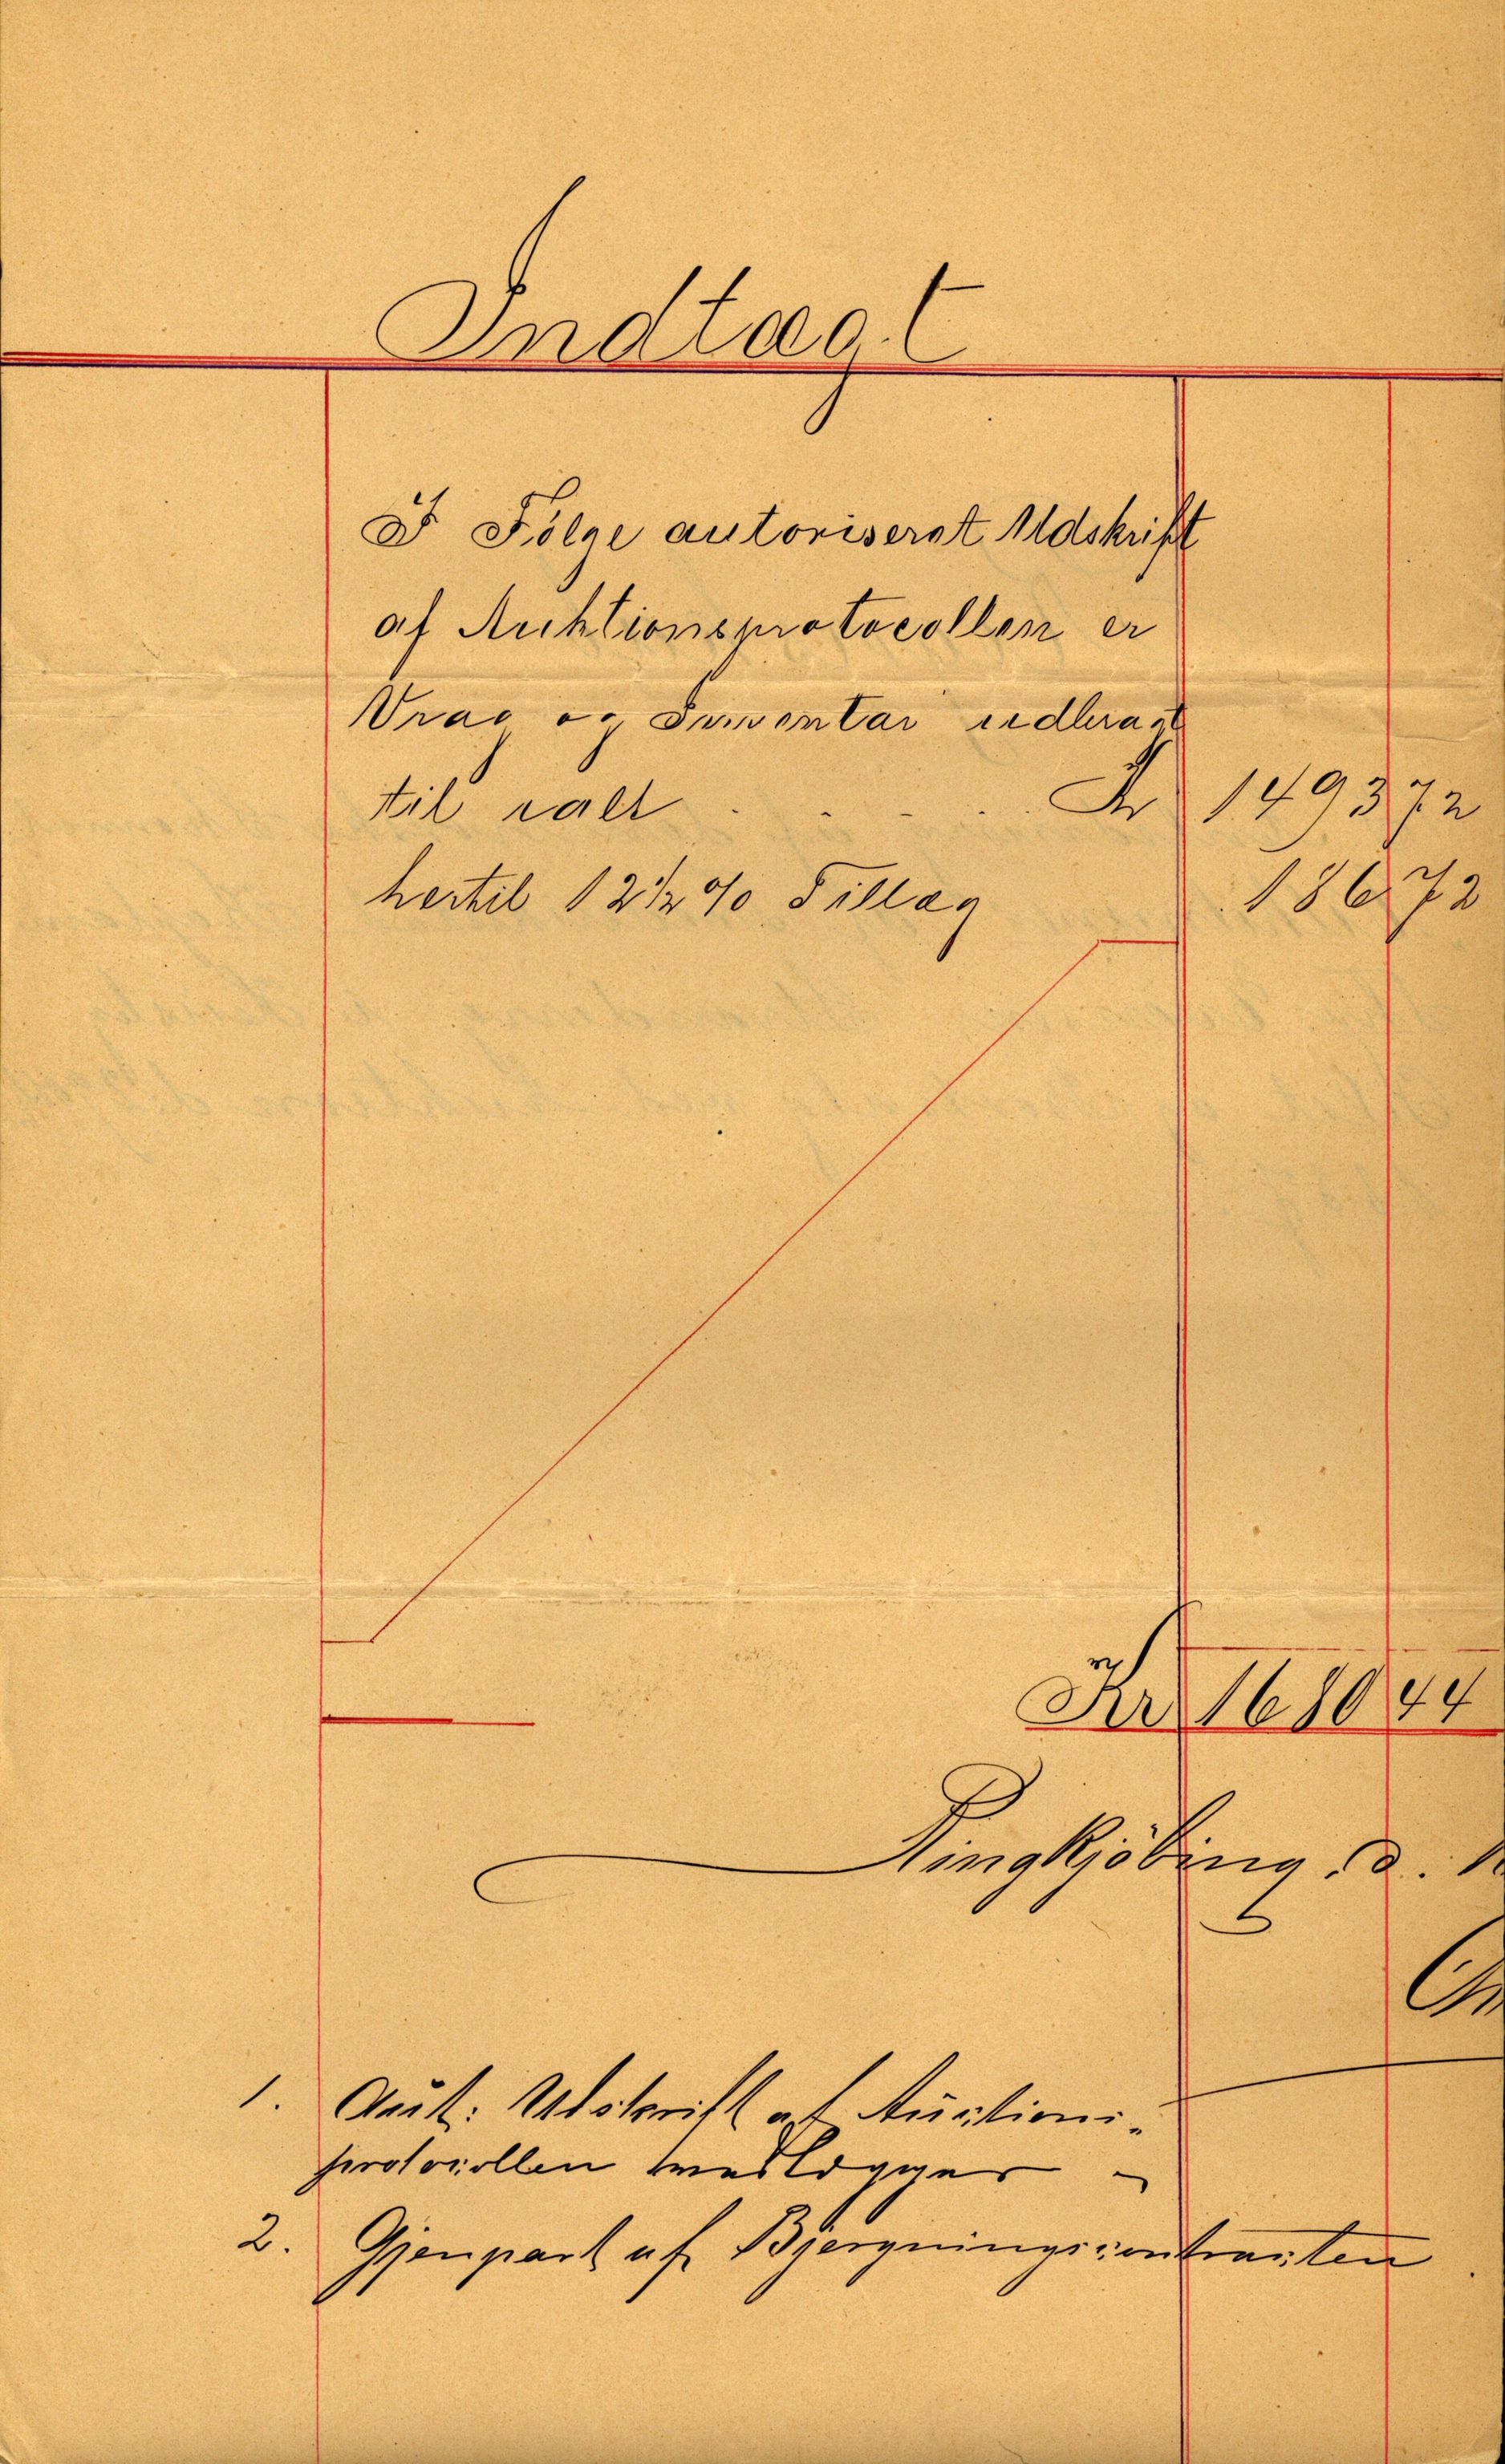 Indtægt
I Følge autoriseret Udskrift
af Auktionsprotocollen er
Vrag og Inventar udbragt
til ialt . . . . Kr 1493 72
hertil 12½ % Tillæg 186 72
Kr 1680 44
Ringkjöbing, d. 1
1. Aut: Udskrift af Auctions-
protocollen vedlægges
2. Gjenpart af Bjergningscontracten